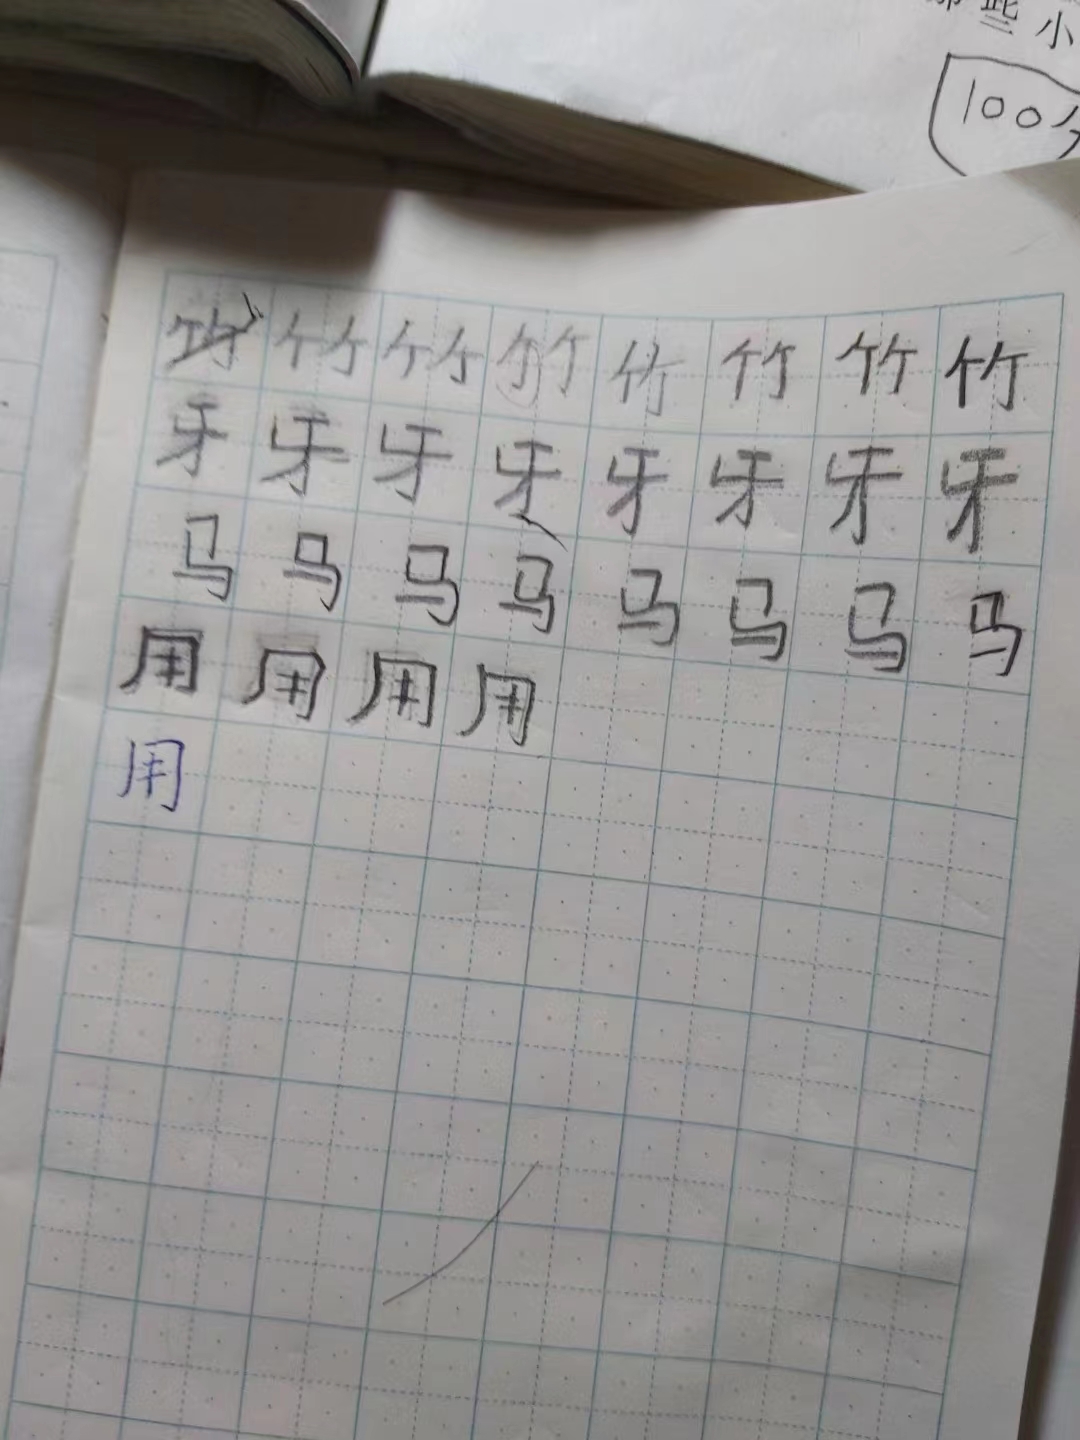 些小
100分
竹竹竹竹竹竹竹竹
牙牙牙牙牙牙牙牙
马马马马马马马马
用用用用
用